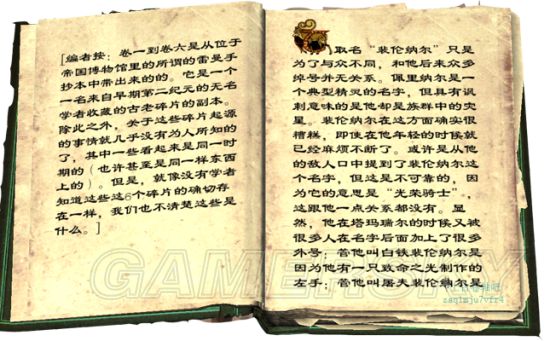 [编者按：卷一到卷六是从位于
帝国博物馆里的所谓的雷曼手
抄本中带出来的的。它是一个
一名来自早期第二纪元的无名
学者收藏的古老碎片的副本。
除此之外，关于这些碎片起源
的事情就几乎没有为人所知的
了，其中一些看起来是同一时
期的（也许甚至是同一样东西
上的）。但是，就像没有学者
知道这些这6个碎片的确切存
在一样，我们也不清楚这些是
什么。]
取名“裴伦纳尔”只是
为了与众不同，和他后来众多
绰号并无关系。佩里纳尔是一
个典型精灵的名字，但具有讽
刺意味的是他却是族群中的灾
星。裴伦纳尔在这方面确实很
糟糕，即使在他年轻的时候就
已经麻烦不断了。或许是从他
的敌人口中提到了裴伦纳尔这
个名字，但这是不可靠的，因
为它的意思是“光荣骑士”，
这跟他一点关系都没有。显
然，他在塔玛瑞尔的时候又被
很多人在名字后面加上了很多
外号：管他叫白铁裴伦纳尔是
因为他有一只致命之光制作的
左手；管他叫屠夫裴伦纳尔是
GAMERSKY